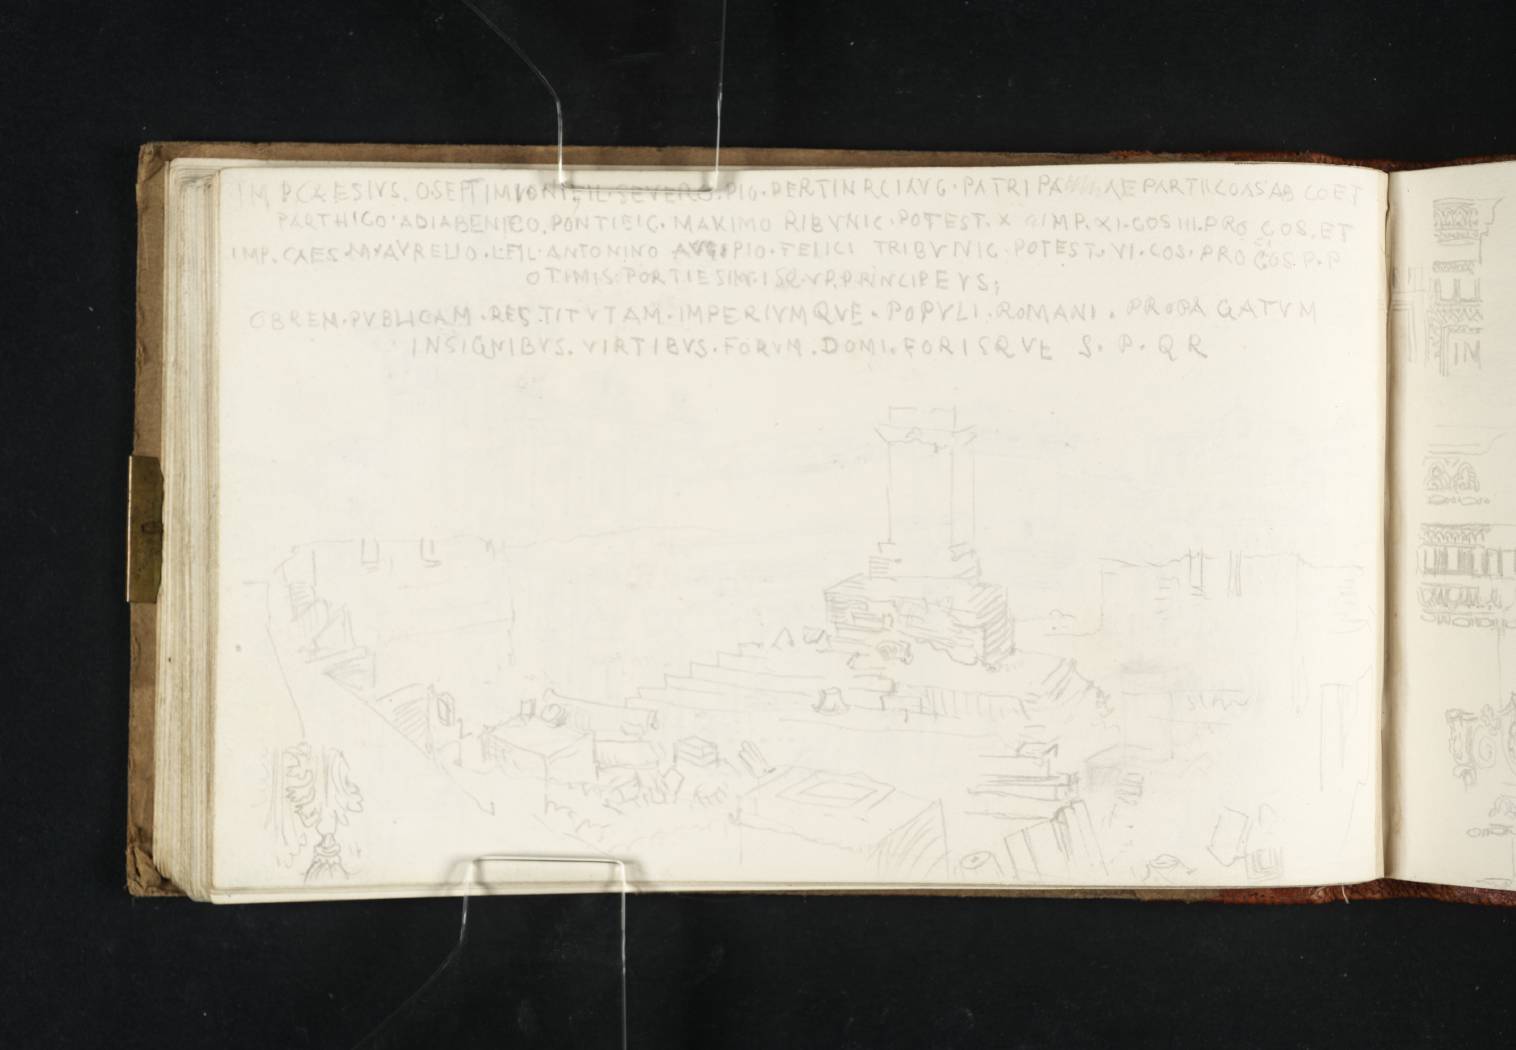 IMPCAESIVS. OSEPTIMIONI.FIL.SEVERO.PIO.PERTINACIAVG.PATRI PA AE PARTIICOAS AB CO ET
PARTHICO ADIABENICO. PONTIFIC. MAXIMO RIBVNIC.POTEST. X IMP. XI.COS III.PRO COS.ET
IMP. CAES.M.AVRELIO.L.FIL.ANTONINO AVG.PIO.FELICI TRIBVNIC.POTEST. VI.COS.PRO COS.P.P
OTIMIS.FORTIESIM.ISQVP.PRINCIPEVS;
OBREM.PVBLICAM.RESTITVTAM.IMPERIVMQVE.POPVLI.ROMANI.PROPAGATVM
INSIGNIBVS.VIRTIBVS.FORVM.DOMI.FORISQVE S.P.QR